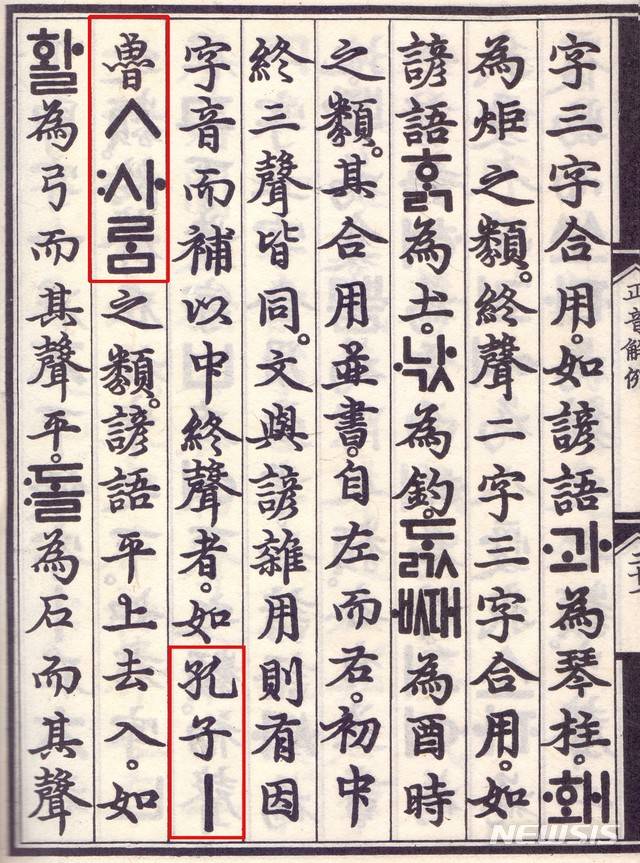 字三字合用。如諺語·과為琴柱。·홰
為炬之類。終聲二字三字合用。如
諺語ᄒᆞᆰ為土。·낛為釣。ᄃᆞᇌ·ᄣᅢ為酉時
之類。其合用並書。自左而右。初中
終三聲皆同。文與諺雜用則有因
字音而補以中終聲者。如孔子ㅣ
魯ㅅ:사ᄅᆞᆷ之類。諺語平上去入。如
활為弓而其聲平。:돌為石而其聲
正音解例
NEWSIS